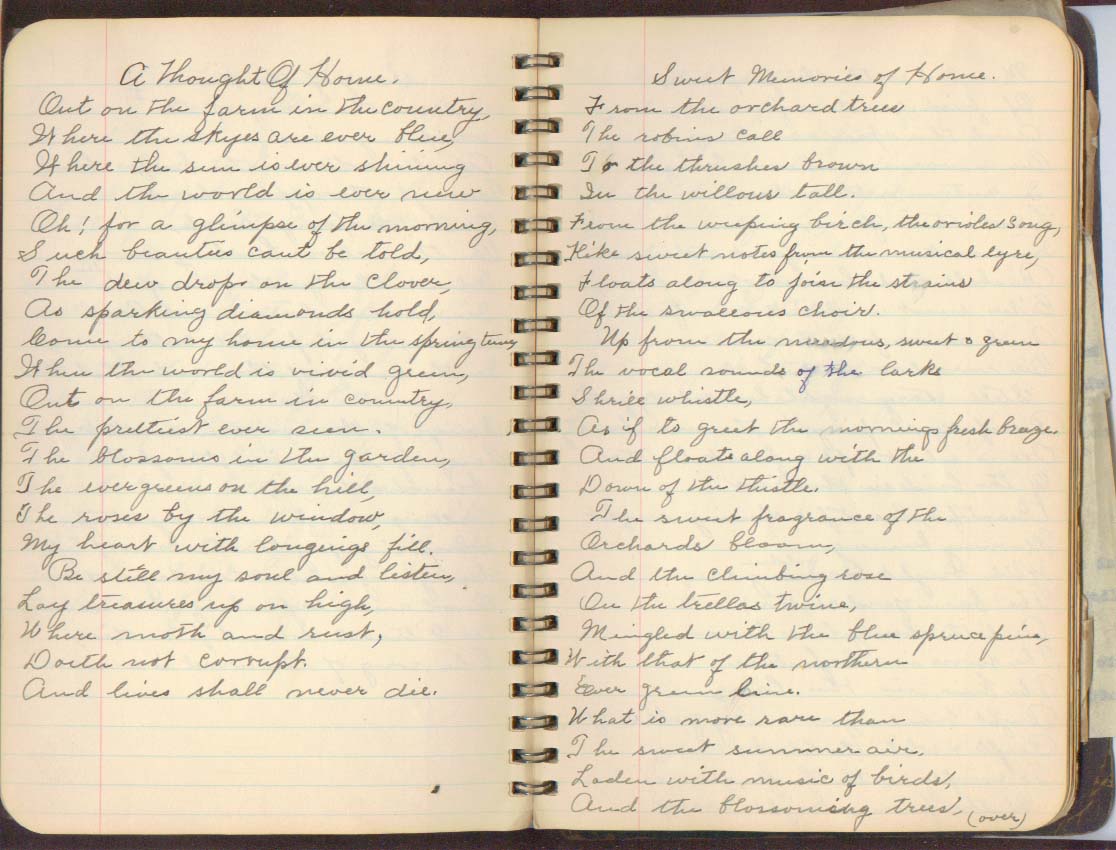 A Thought Of Home.
Out on the farm in the country,
Where the skyes are ever blue,
Where the sun is ever shining
And the world is ever new
Oh! for a glimpse of the morning,
Such beauties cant be told,
The dew drops on the clover,
As sparking diamonds hold,
Come to my home in the spring time,
When the world is vivid green,
Out on the farm in country,
The prettiest ever seen.
The blossoms in the garden,
The evergreens on the hill,
The roses by the window,
My heart with longings fill.
Be still my soul and listen,
Lay treasures up on high,
Where moth and rust,
Doeth not corrupt.
And lives shall never die.
Sweet Memories of Home.
From the orchard trees
The robins call
To the thrushes brown
In the willows tall.
From the weeping birch, the orioles song,
Like sweet notes from the musical lyre,
Floats along to join the strains
Of the swallows choir.
Up from the meadows, sweet & green
The vocal sounds of the larks
Shrill whistle,
As if to greet the mornings fresh breeze.
And floats along with the
Down of the thistle.
The sweet fragrance of the
Orchards bloom,
And the climbing rose
On the trellas twine,
Mingled with the blue spruce pine,
With that of the northern
Ever green line.
What is more rare than
The sweet summer air.
Laden with music of birds,
And the blossoming trees, (over)